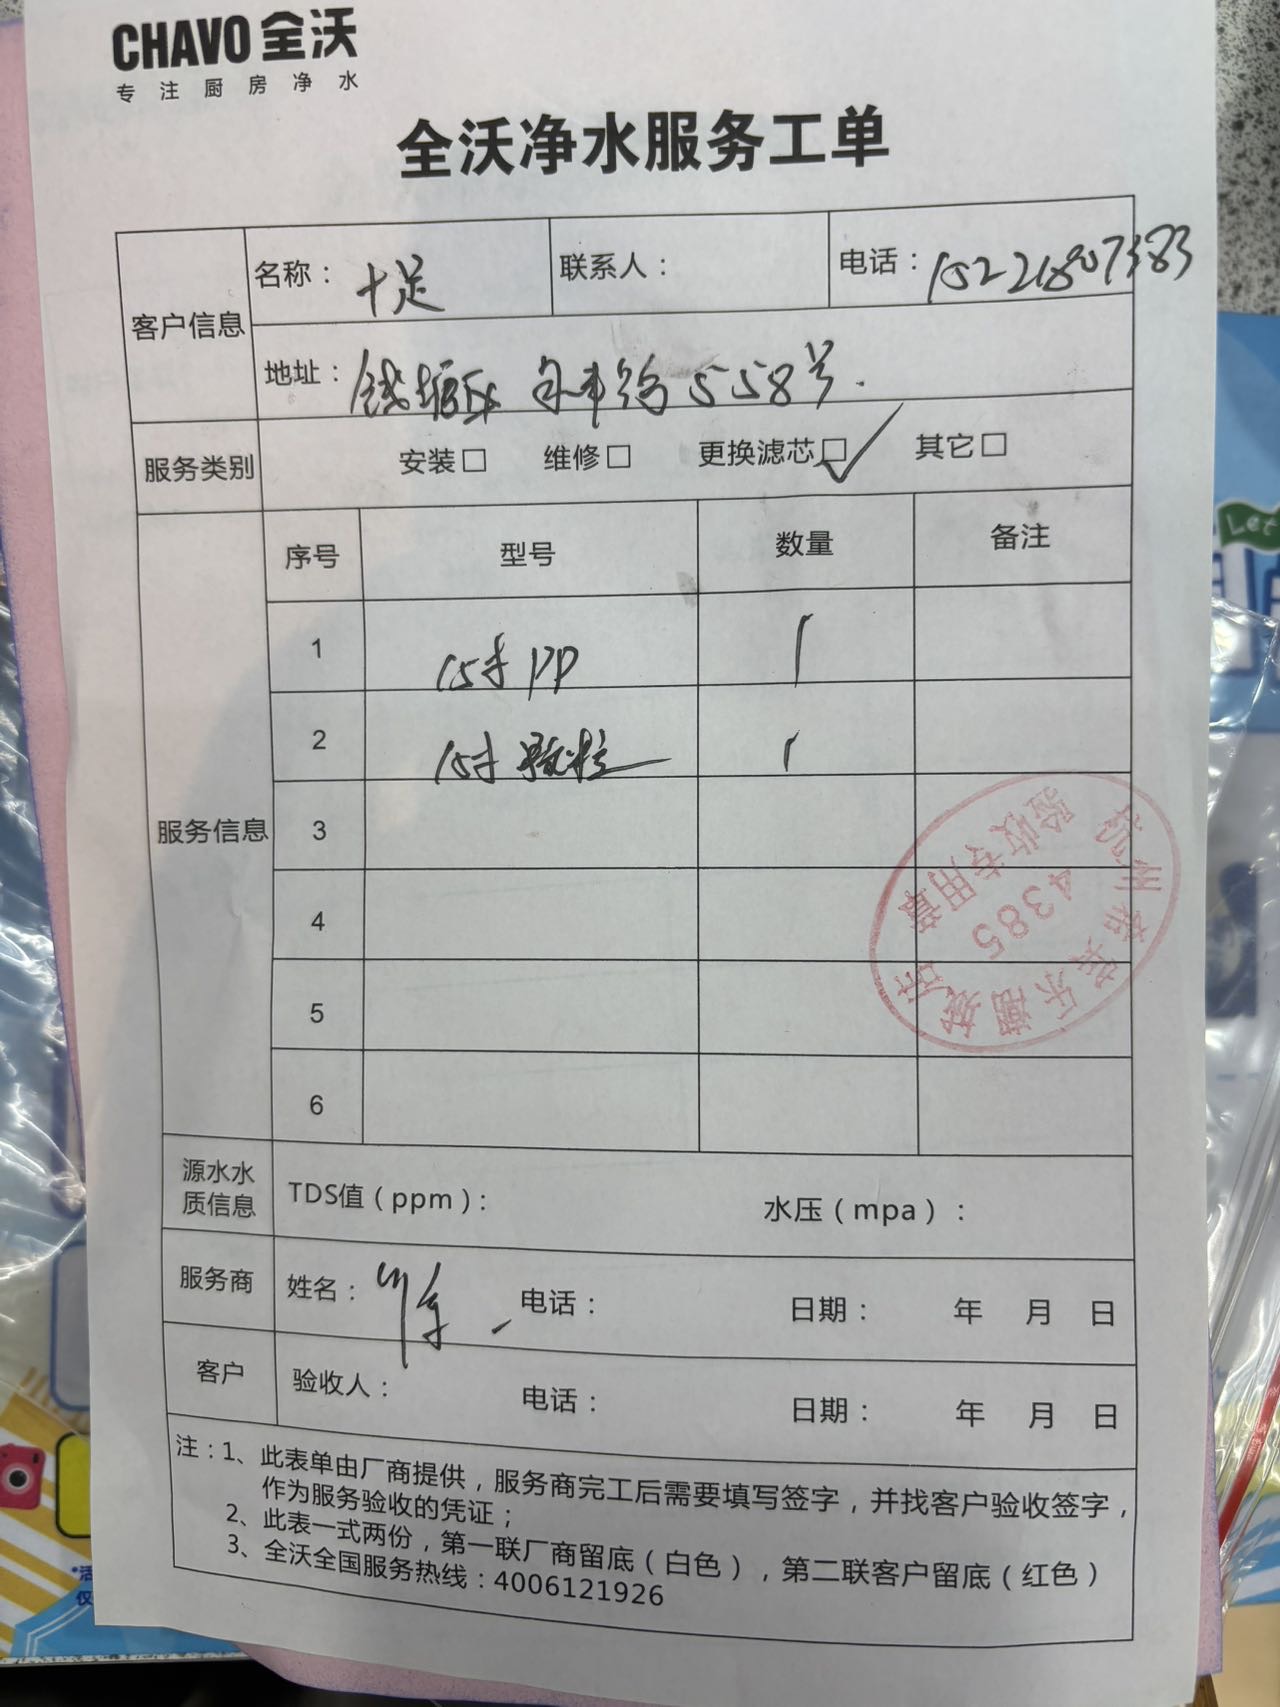 CHAVO 全沃
专注厨房净水
全沃净水服务工单
客户信息
名称：十足
联系人：
电话：15221807383
地址：钱塘区 558号.
服务类别
安装□ 维修□ 更换滤芯□✓ 其它□
服务信息
序号 型号 数量 备注
1 15寸PP 1
2 15寸颗粒 1
3
4
5
6
验收专用章
4385
杭州 乐 城店
源水水质信息
TDS值（ppm）： 水压（mpa）：
服务商 姓名： 电话： 日期： 年 月 日
客户 验收人： 电话： 日期： 年 月 日
注：1、此表单由厂商提供，服务商完工后需要填写签字，并找客户验收签字，
作为服务验收的凭证；
2、此表一式两份，第一联厂商留底（白色），第二联客户留底（红色）
3、全沃全国服务热线：4006121926
Let